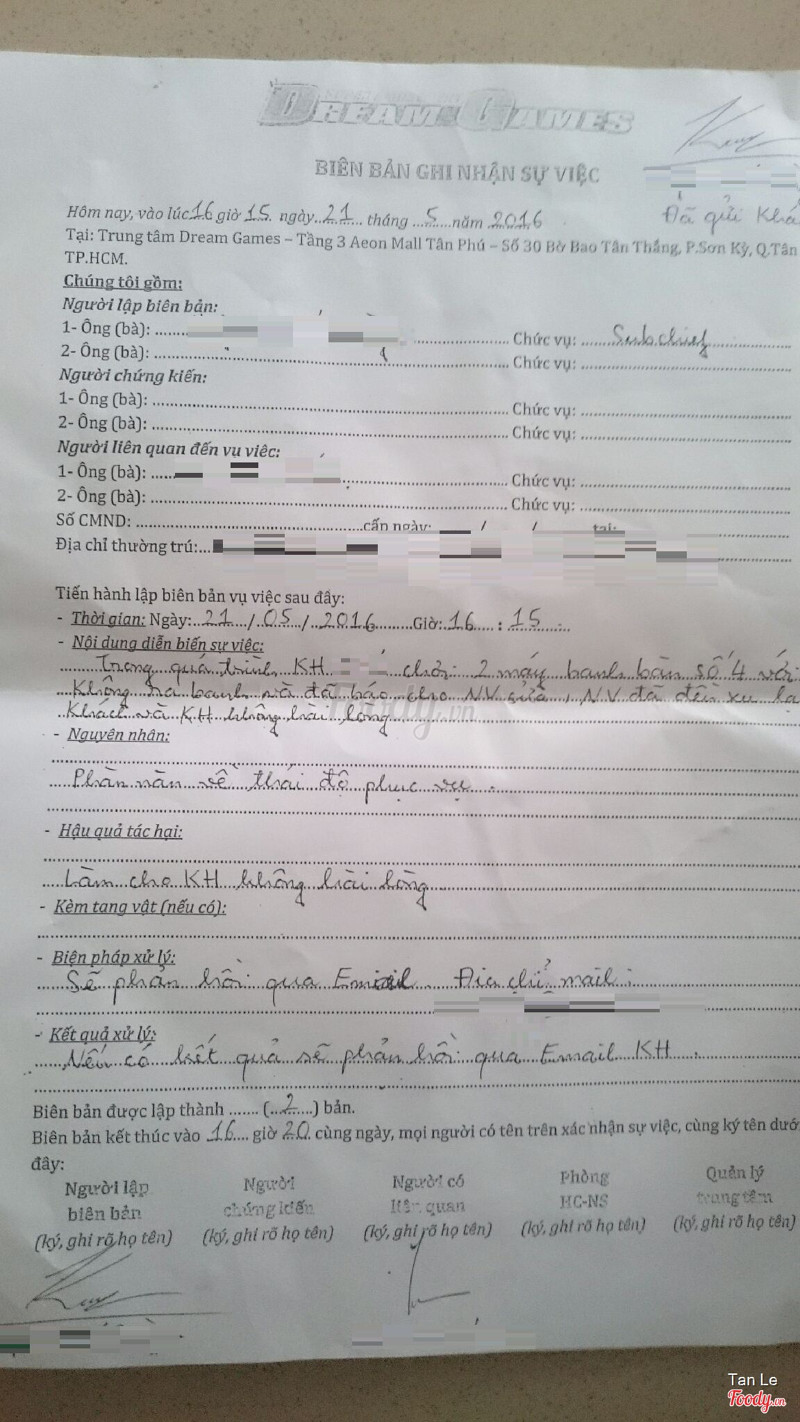 DREAM GAMES
BIÊN BẢN GHI NHẬN SỰ VIỆC
Đã gửi Khá
Hôm nay, vào lúc 16 giờ 15. ngày..21... tháng ..5...năm 2016
Tại: Trung tâm Dream Games – Tầng 3 Aeon Mall Tân Phú – Số 30 Bờ Bao Tân Thắng, P.Sơn Kỳ, Q.Tân
TP.HCM.
Chúng tôi gồm:
Người lập biên bản:
1- Ông (bà): ........ Chức vụ: ........Subchief........
2- Ông (bà): ........ Chức vụ: ........
Người chứng kiến:
1- Ông (bà): ........ Chức vụ: ........
2- Ông (bà): ........ Chức vụ: ........
Người liên quan đến vụ việc:
1- Ông (bà): ........ Chức vụ: ........
2- Ông (bà): ........ Chức vụ: ........
Số CMND: ........cấp ngày: / / tại:
Địa chỉ thường trú:...
Tiến hành lập biên bản vụ việc sau đây:
- Thời gian: Ngày:..21.../.05./..2016........Giờ:.16.... : .15.....
- Nội dung diễn biến sự việc:
Trong quá trình KH chơi 2 máy banh bàn số 4 với
Không ra banh và đã báo cho NV sửa, NV đã đền xu lại
Khách và KH không hài lòng
- Nguyên nhân:
Phàn nàn về thái độ phục vụ.
- Hậu quả tác hại:
Làm cho KH không hài lòng
- Kèm tang vật (nếu có):
- Biện pháp xử lý:
Sẽ phản hồi qua Email. Địa chỉ mail:
- Kết quả xử lý:
Nếu có kết quả sẽ phản hồi qua Email KH.
Biên bản được lập thành ....... (...2....) bản.
Biên bản kết thúc vào 16.... giờ 20 cùng ngày, mọi người có tên trên xác nhận sự việc, cùng ký tên dưới
đây:
Người lập Người Người có Phòng Quản lý
biên bản chứng kiến liên quan HC-NS trung tâm
(ký, ghi rõ họ tên) (ký, ghi rõ họ tên) (ký, ghi rõ họ tên) (ký, ghi rõ họ tên) (ký, ghi rõ họ tên)
Tan Le
Foody.vn